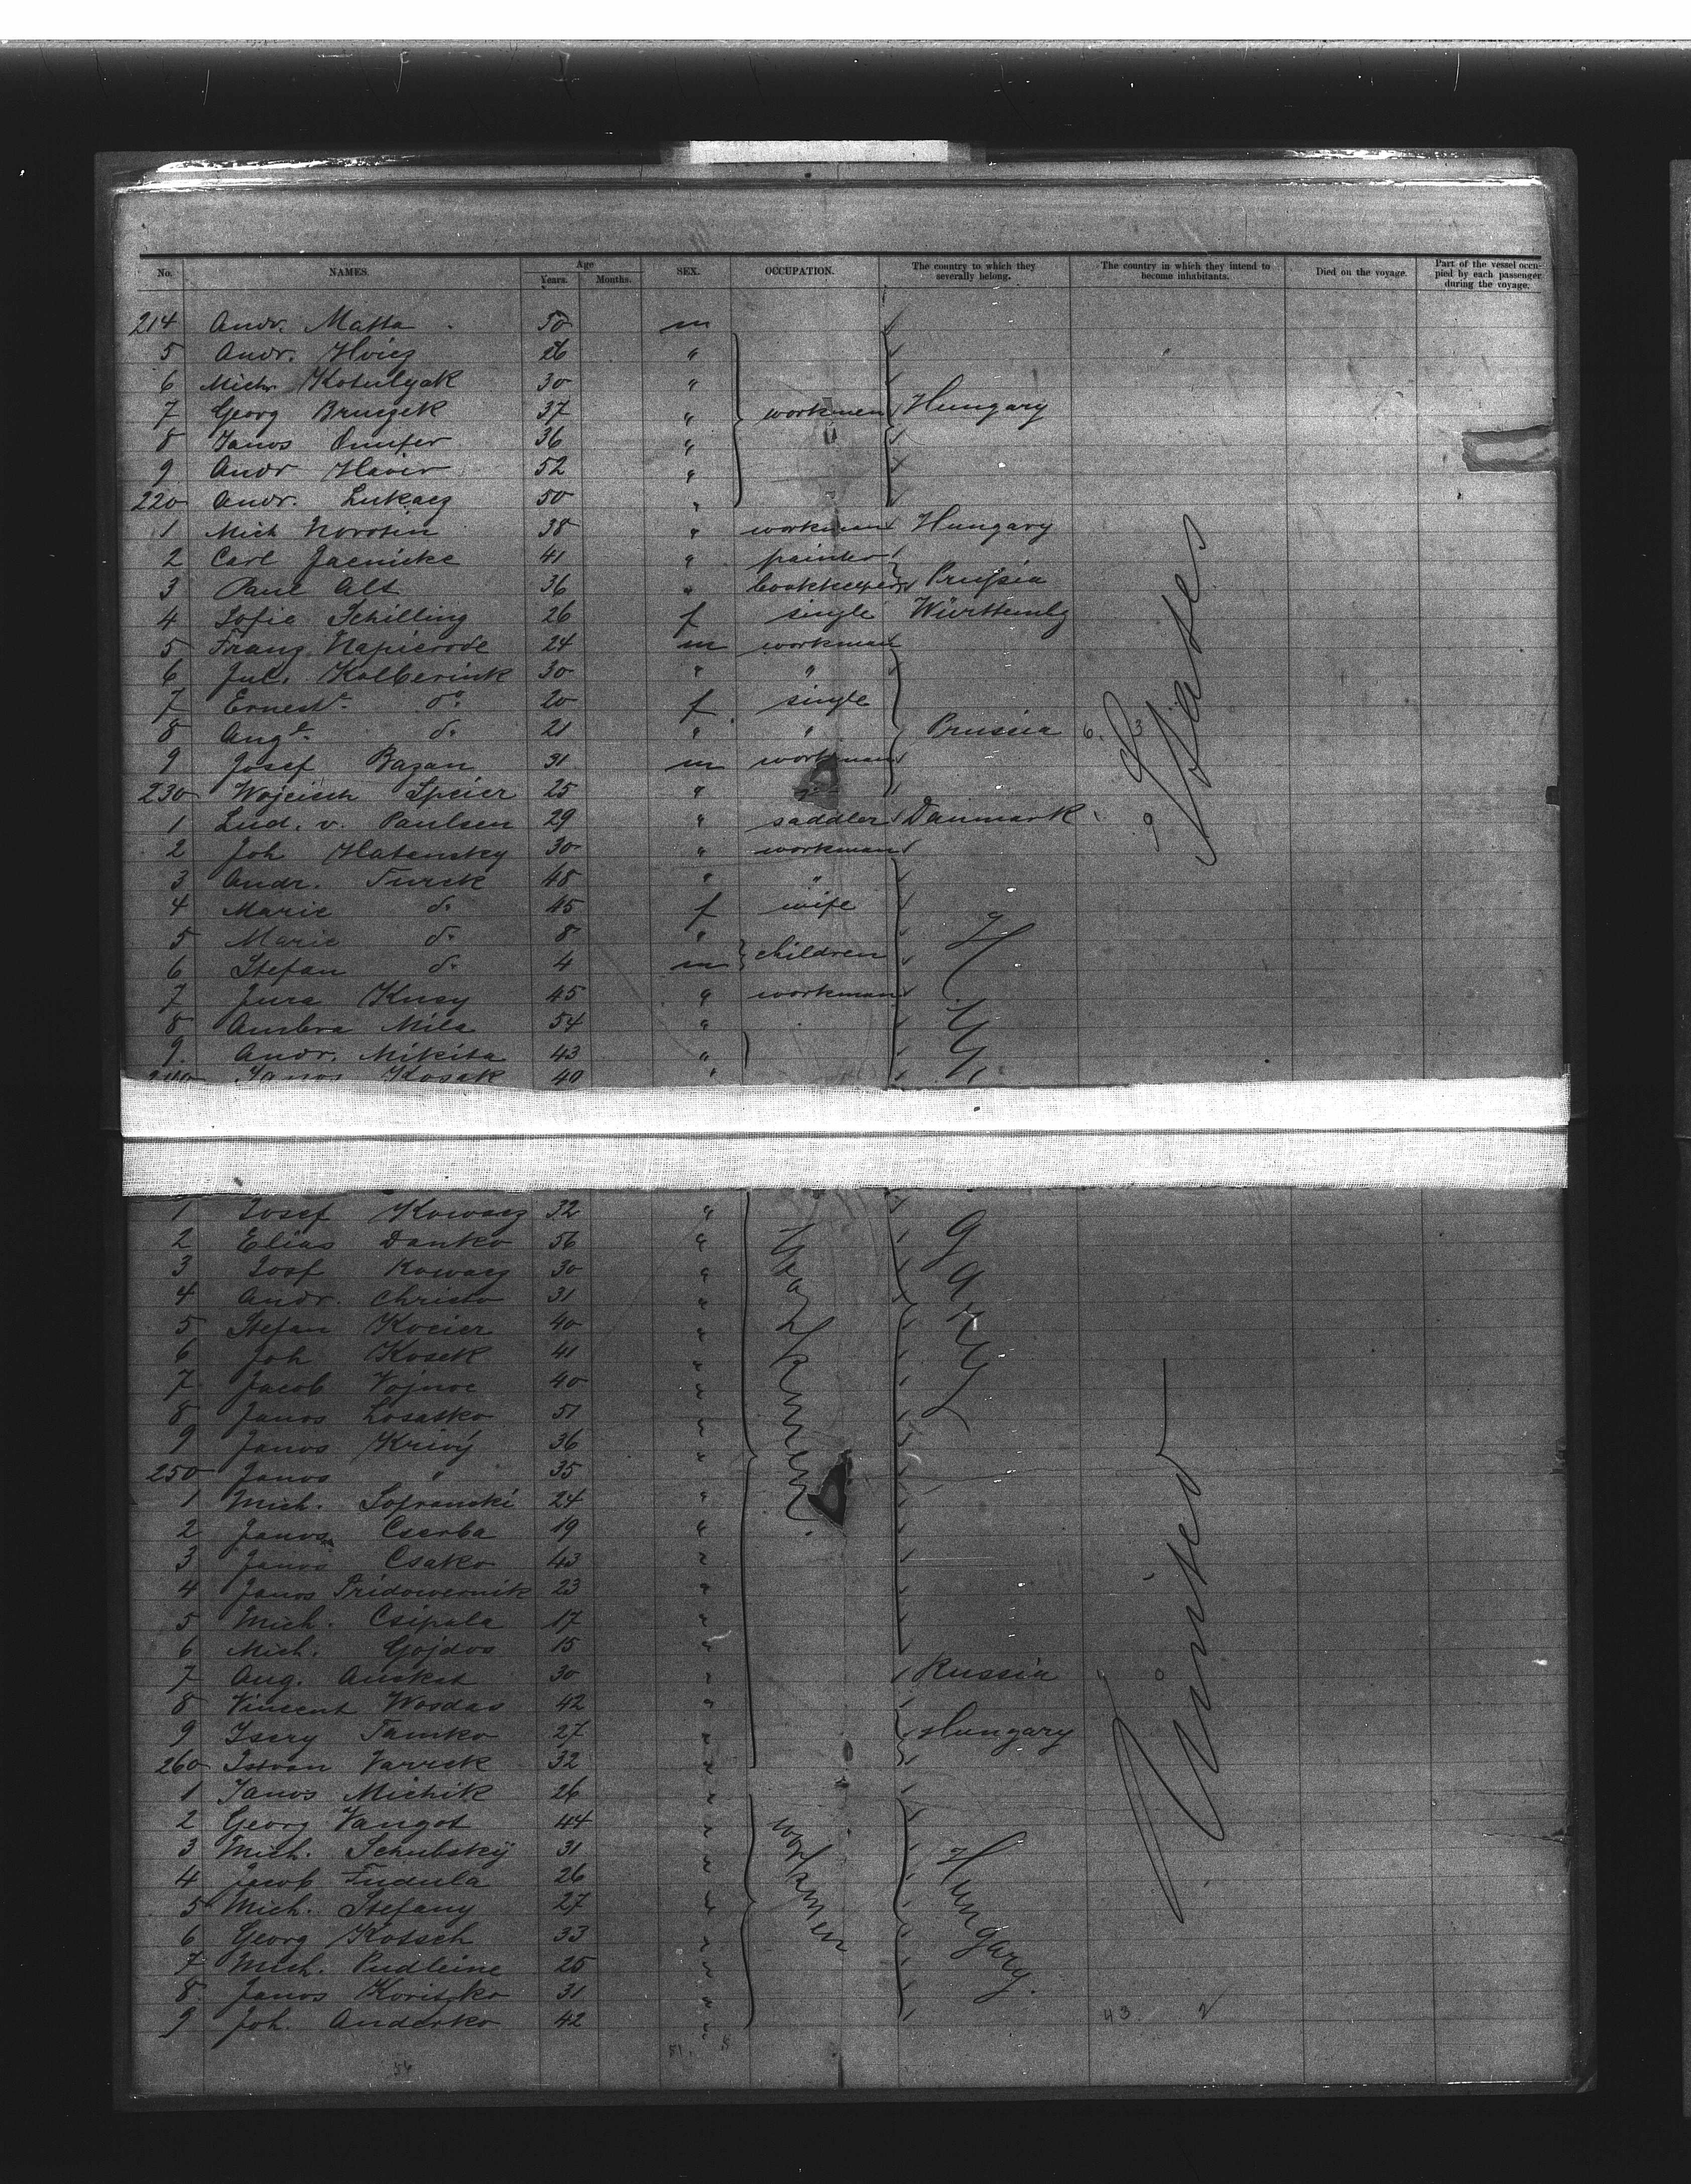 No. NAMES. Age Years. Months. SEX. OCCUPATION. The country to which they severally belong. The country in which they intend to become inhabitants. Died on the voyage. Part of the vessel occupied by each passenger during the voyage.
214 Andr. Matta 50 m
5 Andr. 26 "
6 Mich. Kotulyak 30 "
7 Georg 37 " workmen Hungary
8 Janos 36 "
9 Andr 52 "
220 Andr. Lukacz 50 "
1 Mich 38 " workman Hungary
2 Carl Jaenicke 41 " painter
3 Paul Alt 36 " bookkeeper Prussia
4 Sofie Schilling 26 f single Württembg
5 Franz Napierode 24 m workman
6 Jul. Kolberink 30 " "
7 Ernest. do 20 f single
8 Aug. do 21 " " Prussia 6. 3
9 Josef Bazan 31 m workman
230 Wojciech Speier 25 "
1 Lud. v. Paulsen 29 " saddler Danmark
2 Joh Hatensky 30 " workman
3 Andr. Turek 48 " "
4 Marie do 45 f wife
5 Marie do 8 "
6 Stefan do 4 m children
7 Jura Knay 45 " workman
8 Mila 54 "
9 Andr. Mikita 43 "
240 Janos Kosak 40 "
1 Josef Kowacz 32 "
2 Elias Danko 56 "
3 Josf Kowacz 30 "
4 Andr. Christo 31 "
5 Stefan Kocier 40 "
6 Joh Kosek 41 "
7 Jacob Vojnoc 40 "
8 Janos Losatko 51 "
9 Janos Krivý 36 "
250 Janos " 35 "
1 Mich. Sofranski 24 "
2 Janos Cserba 19 "
3 Janos Csako 43 "
4 Janos Pridowconik 23 "
5 Mich. Csipala 17 "
6 Mich. Gojdos 15 "
7 Aug. Ausket 30 " Russia
8 Vincent Wosdas 42 "
9 Isery Tamko 27 " Hungary
260 Istvan Varrek 32 "
1 Janos Michik 26 "
2 Georg Vangot 44 "
3 Mich. Schubsky 31 "
4 Jacob Fudula 26 "
5 Mich. Stefany 27 "
6 Georg Kotsch 33 "
7 Mich. Pudleine 25 "
8 Janos Koritzko 31 "
9 Joh. Anderko 42 "
workmen
workmen
Hungary.
United States
43.
51. 5